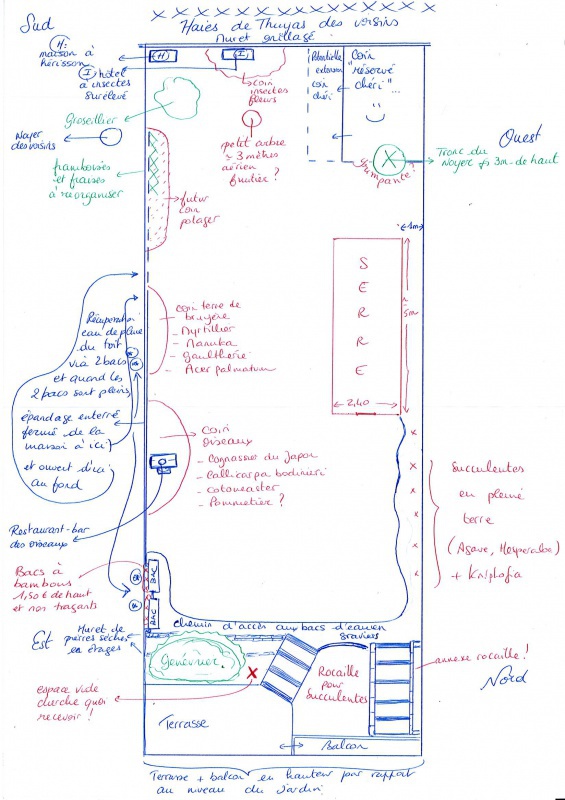 Sud
Haies de Thuyas des voisins
Muret grillagé
H:
maison à
hérisson
I hôtel
à insectes
surélevé
(H)
(I)
coin
insectes
fleurs
Potentielle
extension
coin
chéri
Coin
"réservé
chéri"...
Groseillier
petit arbre
≈ 3 mètres
aérien
fruitier ?
Noyer
des voisins
Ouest
Tronc du
Noyer 3m de haut
grimpante?
framboises
et fraises
à réorganiser
futur
coin
potager
1m
SERRE
5m
2,40
coin terre de
bruyère
- Myrtillier
- Manuka
- gaultherie
- Acer palmatum
Récupération
eau de pluie
du toit
via 2 bacs
et quand les
2 bacs sont pleins,
épandage enterré
fermé de la
maison à ici
et ouvert d'ici
au fond
coin
oiseaux
- Cognassier du Japon
- Callicarpa bodinieri
- cotoneaster
- Pommetier ?
Succulentes
en pleine
terre
(Agave, Hesperaloe)
+ Kniphofia
Restaurant-bar
des oiseaux
Bacs à
bambous
1,50 € de haut
et non traçants
BAC
BAC
chemin d'accès aux bacs d'eau en
graviers
Est
Muret de
pierres sèches
en étages
Genévrier.
Rocaille
pour
Succulentes
annexe rocaille !
Nord
espace vide
cherche quoi
recevoir !
Terrasse
Balcon
Terrasse + balcon en hauteur par rapport
au niveau du jardin